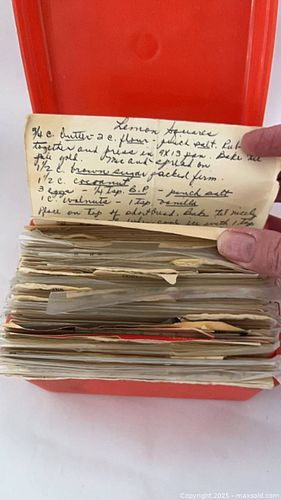 Lemon Squares
3/4 c. butter - 2 c. flour - pinch salt. Rub
together and press in 9X13 pan. Bake 'til
pale gold. Mix and spread on
1 1/2 c. brown sugar packed firm.
1/2 c. cocoanut
3 eggs - 1/4 tsp. B.P. - pinch salt
1 c. walnuts - 1 tsp. vanilla
Place on top of shortbread. Bake 'til nicely
when cool ice with 1 tbsp
Copyright 2025 - maxsold.com